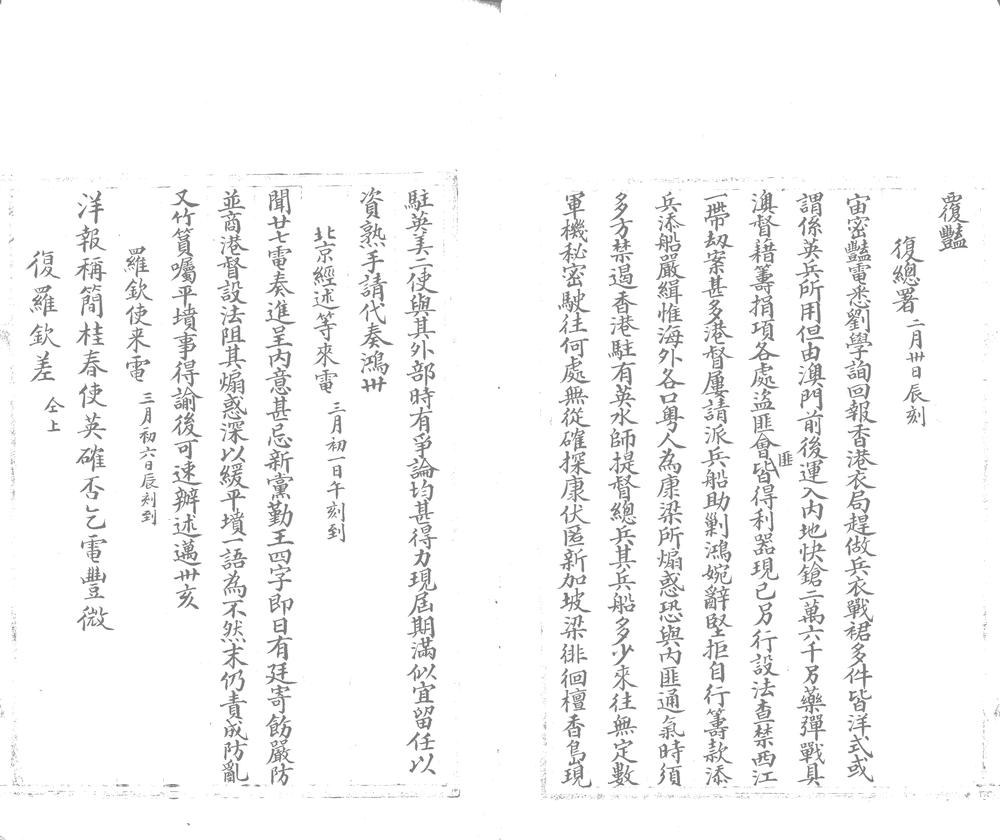 覆豔
復總署 二月卅日辰刻
宙密豔電悉劉學詢回報香港衣局趕做兵衣戰裙多件皆洋式或
謂係英兵所用但由澳門前後運入內地快鎗二萬六千另藥彈戰具
澳督藉籌捐項各處盜匪會匪皆得利器現已另行設法查禁西江
一帶刧案甚多港督屢請派兵船助剿鴻婉辭堅拒自行籌款添
兵添船嚴緝惟海外各口粵人為康梁所煽惑恐與內匪通氣時須
多方禁遏香港駐有英水師提督總兵其兵船多少來往無定數
軍機秘密駛往何處無從確探康伏匿新加坡梁徘徊檀香島現
駐英美二使與其外部時有爭論均甚得力現屆期滿似宜留任以
資熟手請代奏鴻卅
北京經述等來電 三月初一日午刻到
聞廿七電奏進呈內意甚忌新黨勤王四字即日有廷寄飭嚴防
並商港督設法阻其煽惑深以緩平墳一語為不然末仍責成防亂
又竹篔囑平墳事得諭後可速辦述邁卅亥
羅欽使来電 三月初六日辰刻到
洋報稱簡桂春使英確否乞電豐微
復羅欽差 仝上